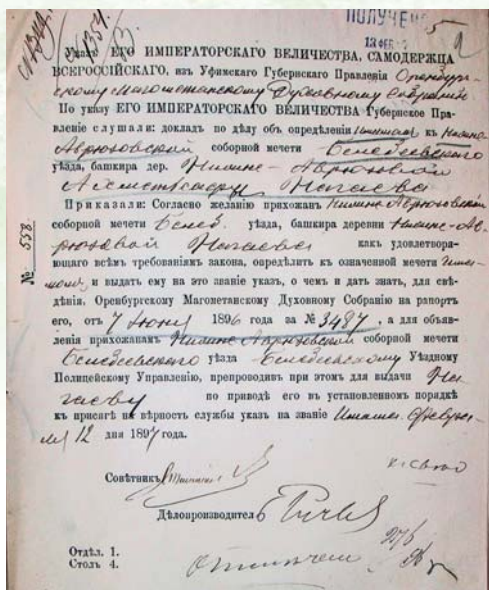 ПОЛУЧЕН
12 ФЕВ
№ 1354
Указъ ЕГО ИМПЕРАТОРСКАГО ВЕЛИЧЕСТВА, САМОДЕРЖЦА
ВСЕРОССІЙСКАГО, изъ Уфимскаго Губернскаго Правленія Оренбург-
скому Магометанскому Духовному Собранію
По указу ЕГО ИМПЕРАТОРСКАГО ВЕЛИЧЕСТВА Губернское Пра-
вленіе слушали: докладъ по дѣлу объ опредѣленіи имамомъ къ Нижне-
Аврюзовской соборной мечети Белебеевскаго
уѣзда, башкира дер. Нижне-Аврюзовой
Ахметсафы Нагаева
Приказали: Согласно желанію прихожанъ Нижне Аврюзовской
соборной мечети Белеб. уѣзда, башкира деревни Нижне-Ав-
рюзовой Нагаева какъ удовлетворя-
ющаго всѣмъ требованіямъ закона, опредѣлить къ означенной мечети има-
момъ и выдать ему на это званіе указъ, о чемъ и дать знать, для свѣ-
дѣнія, Оренбургскому Магометанскому Духовному Собранію на рапортъ
его, отъ 7 Іюня 1896 года за № 3487, а для объяв-
ленія прихожанамъ Нижне Аврюзовской соборной мечети
Белебеевскаго уѣзда Белебеевскому Уѣздному
Полицейскому Управленію, препроводивъ при этомъ для выдачи На-
гаеву по приводѣ его въ установленномъ порядкѣ
къ присягѣ на вѣрность службы указъ на званіе Имама. Февра-
ля 12 дня 1897 года.
№ 558
Совѣтникъ
Дѣлопроизводитель
Отдѣл. 1.
Столъ 4.